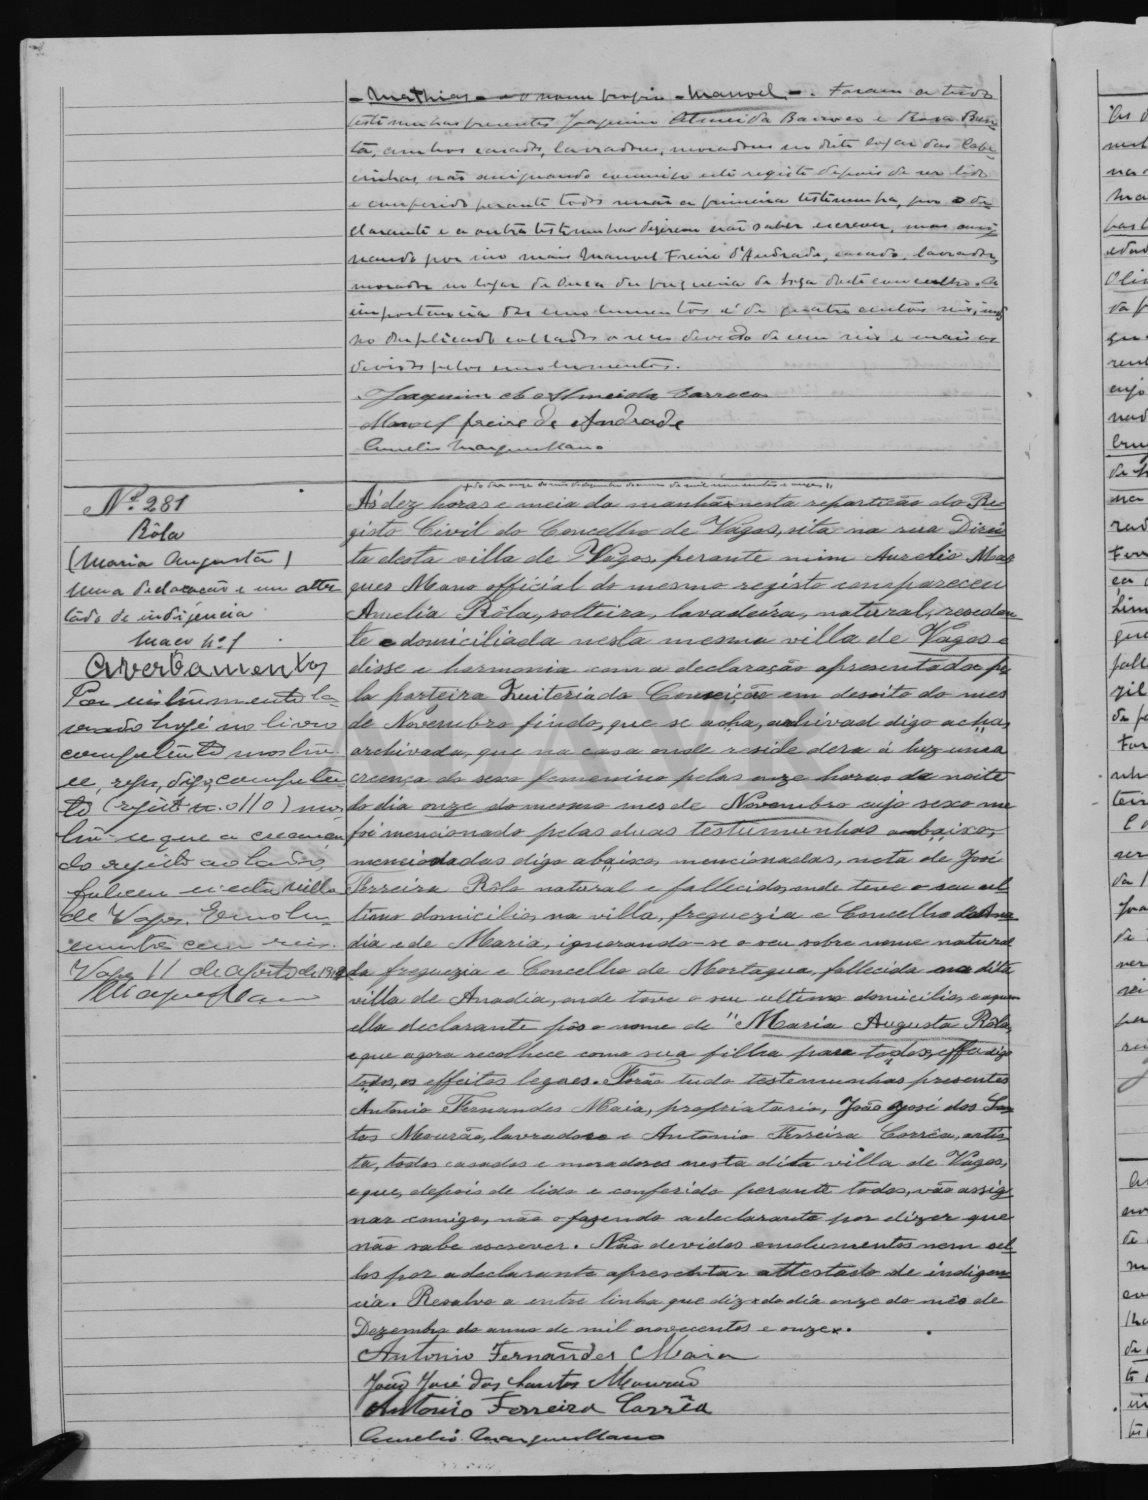 - Mathias - e o nome proprio - Manoel -. Foram a tudo
testimunhas presentes Joaquim Almeida Barroco e Rosa Bur-
ta, ambos casados, lavradores, moradores no dito logar das Labr
cinhas, não assignando commigo este registo depois de ser lido
e conferido perante todos senão a primeira testimunha, por o de-
clarante e a outra testimunha dizerem não saber escrever, mas assig-
nando por isso mais Manoel Freire d'Andrade, casado, lavrador,
morador no logar de Ouca da freguesia de Soza deste concelho. A
importancia dos emolumentos é de quatrocentos reis, indo
no duplicado collados o seu devido de cem reis e mais os
devidos pelos emolumentos.
Joaquim de Almeida Barroco
Manoel Freire de Andrade
Aurelio Marques Mano
Nº 281
Rôla
(Maria Augusta)
Uma declaração e um attes
tado de indigencia
Maço nº 1
Averbamentos
Por instrumento la-
vrado hoje no livro
competente mostra-
se, reg., digo, competen-
te (registo n. 0110) mos-
tra-se que a creança
do registo ao lado,
faleceu n'esta villa
de Vagos. Emolu-
mentos cem reis.
Vagos 11 de agosto de 1912
Marques Mano
"do dia onze do mez de Dezembro do anno de mil novecentos e onze"
Ás dez horas e meia da manhã nesta repartição do Re-
gisto Civil do Concelho de Vagos, sita na rua Direi-
ta desta villa de Vagos, perante mim Aurelio Mar
ques Mano official do mesmo registo compareceu
Amelia Rôla, solteira, lavadeira, natural, residen-
te e domiciliada nesta mesma villa de Vagos e
disse e harmonia com a declaração apresentada pe-
la parteira Quiteria da Conceição em desoito do mes
de Novembro findo, que se acha, archivad digo acha,
archivada, que na casa onde reside dera á luz uma
creança do sexo femenino pelas onze horas da noite
do dia onze do mesmo mes de Novembro cujo sexo me
foi mencionado pelas duas testemunhas abaixo,
menciodadas digo abaixo, mencionadas, neta de José
Ferreira Rôla natural e fallecido, onde teve o seu ul-
timo domicilio, na villa, freguezia e Concelho de Ana-
dia e de Maria, ignorando-se o seu sobre nome natural
da freguezia e Concelho de Mortagua, fallecida na dita
villa de Anadia, onde teve o seu ultimo domicilio, e a quem
ella declarante pôs o nome de "Maria Augusta Rôla,
e que agora recolhece como sua filha para todos, effei digo
todos, os effeitos legaes. Forão tudo testemunhas presentes
Antonio Fernandes Maia, proprietario, João José dos San
tos Mourão, lavrador e Antonio Ferreira Corrêa, artis-
ta, todos casados e moradores nesta dita villa de Vagos,
e que, depois de lido e conferido perante todos, vão assig-
nar comigo, não o fazendo a declarante por dizer que
não sabe escrever. Não devidos emolumentos nem sel-
los por a declarante apresentar attestado de indigen-
cia. Resalvo a entre linha que diz «do dia onze do mês de
Dezembro do anno de mil novecentos e onze».
Antonio Fernandes Maia
João José dos Santos Mourão
Antonio Ferreira Corrêa
Aurelio Marques Mano